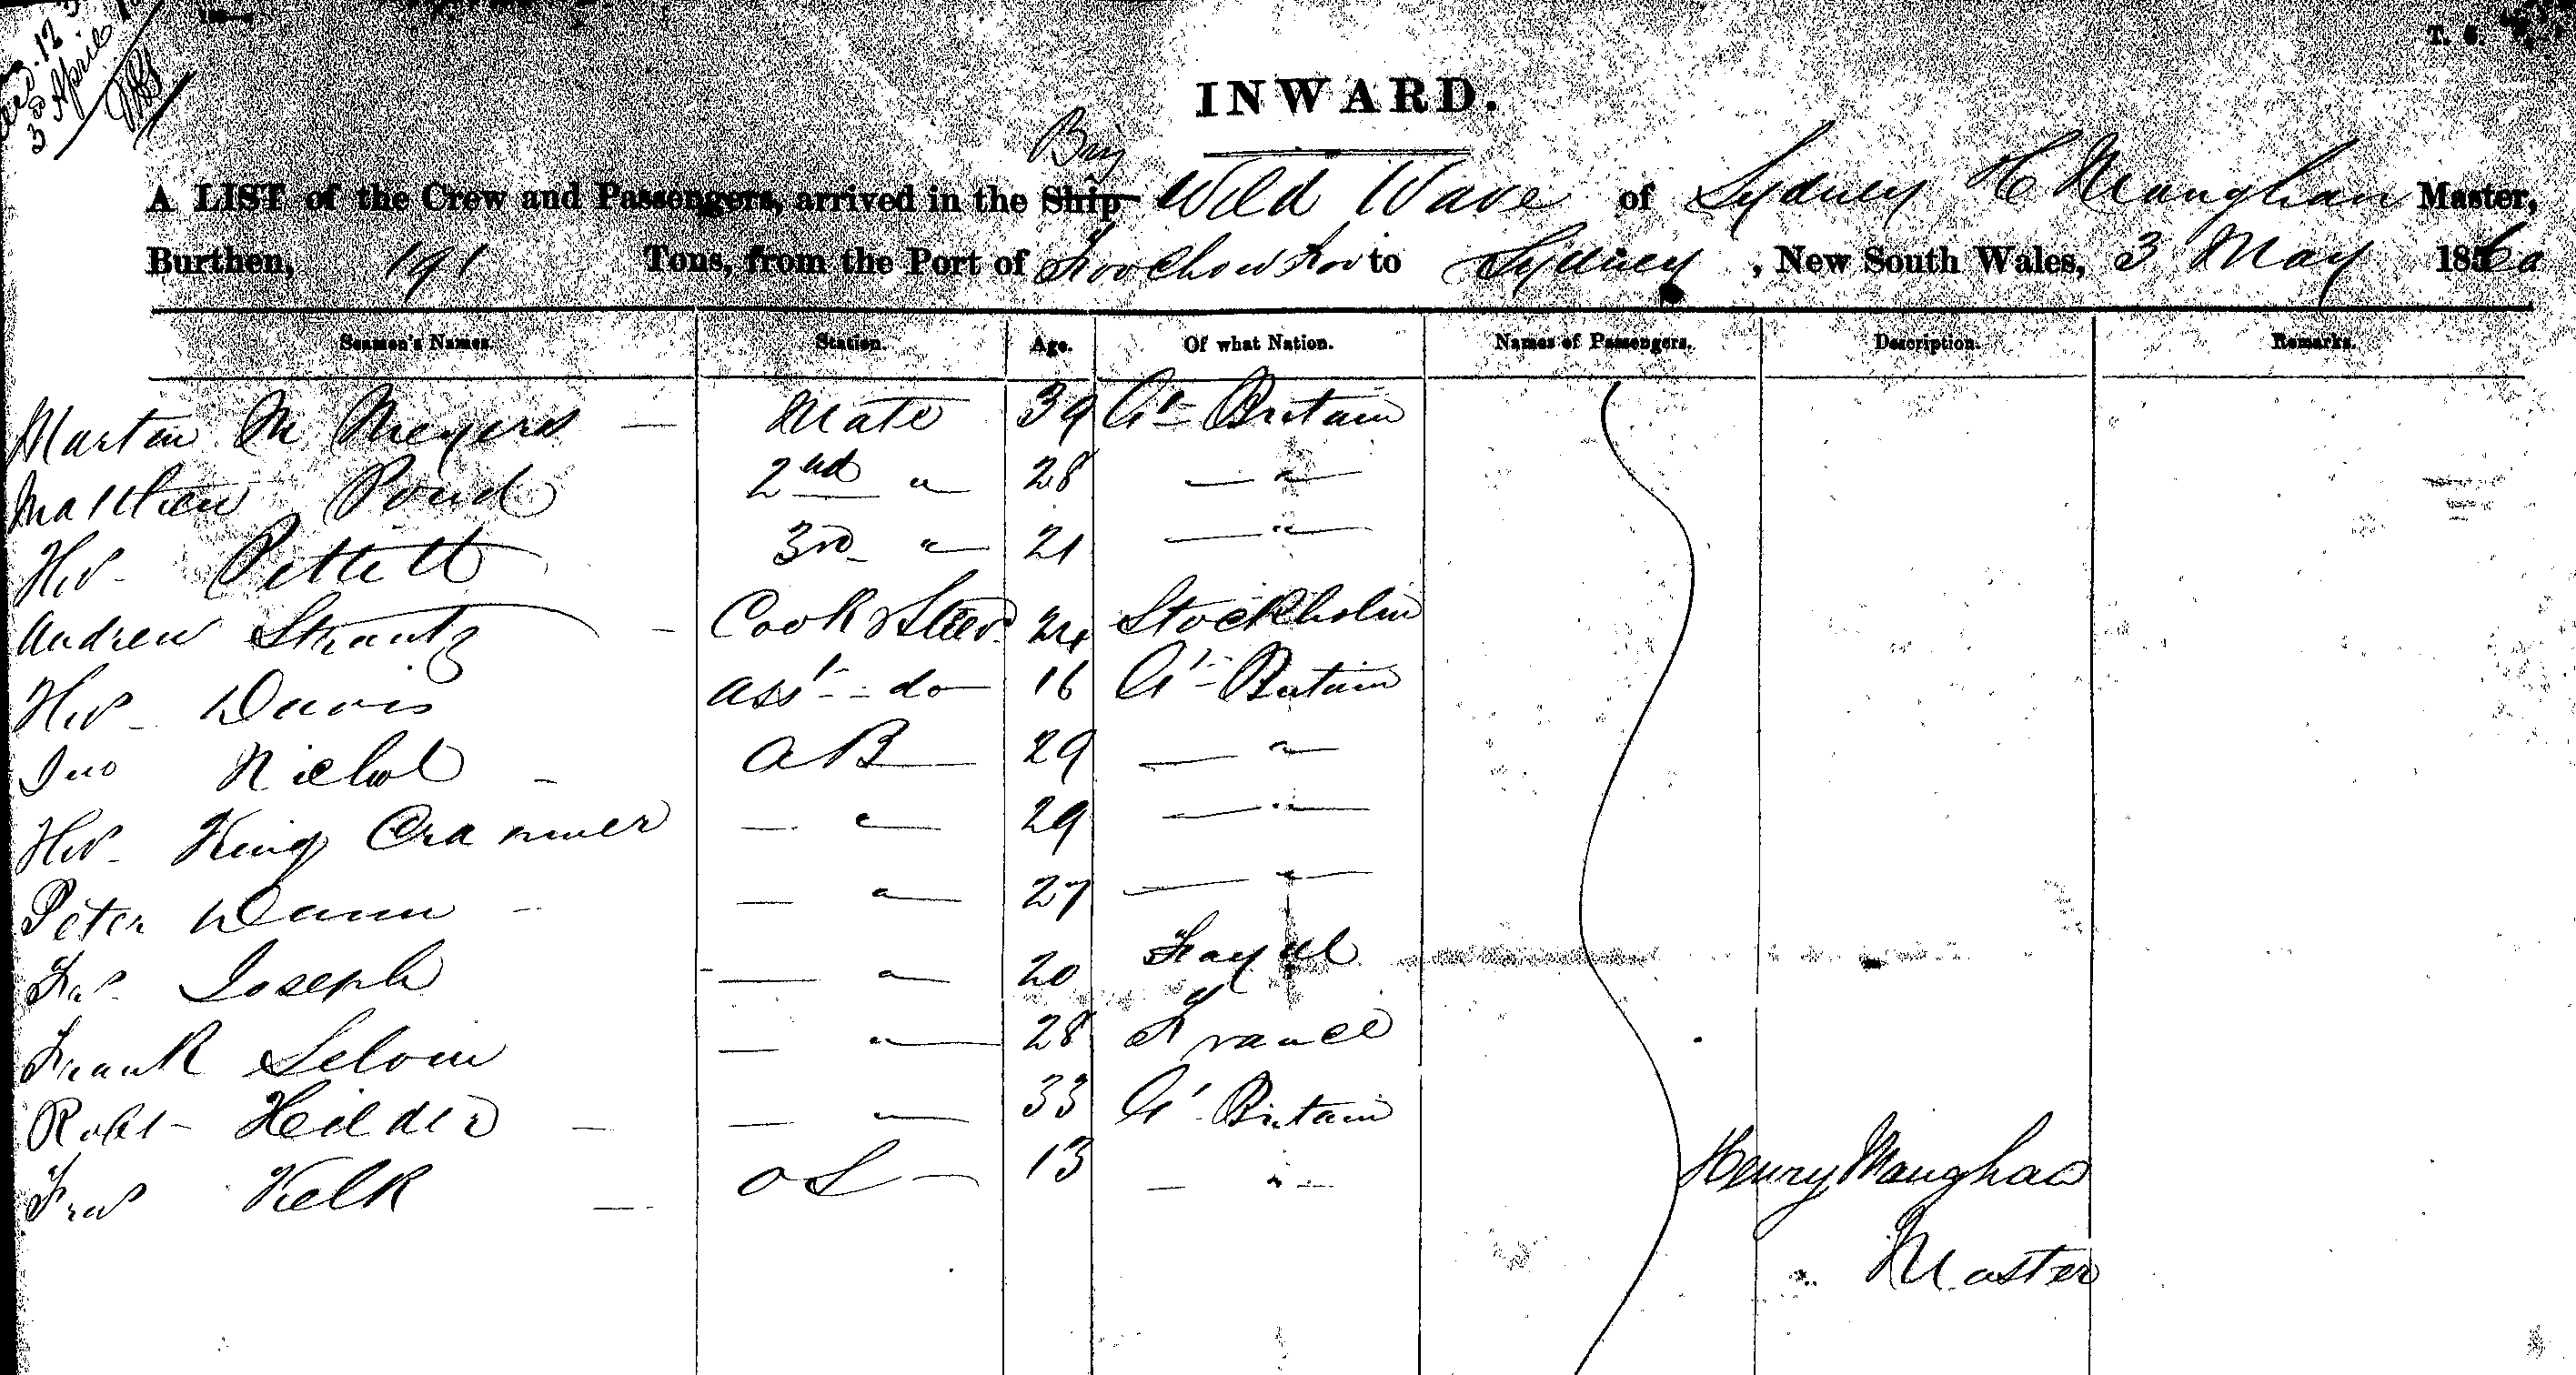 3 April
T. 6.
INWARD.
Brig
A LIST of the Crew and Passengers, arrived in the Ship Wild Wave of Sydney H Maughan Master,
Burthen, 191 Tons, from the Port of Foochowfoo to Sydney, New South Wales, 3 May 1860
Seamen's Names. Station. Age. Of what Nation. Names of Passengers. Description. Remarks.
Martin M Meyers — Mate 39 Gt Britain
Matthew Pond 2nd " 28 — "
Hy Pettett 3rd " 21 — "
Andrew Strautz — Cook & Stewd 24 Stockholm
Hy Davis Asst do 16 Gt Britain
Jno Nichol — AB 29 — "
Hy King Cranmer — " 29 — "
Peter Dunn — — " 27 — "
Fras Joseph — " 20 Fayal
Frank Selvin — " 28 France
Robt Heilder — — " 33 Gt Britain
Fras Kelk — OS — 13 — " —
Henry Maughan
Master